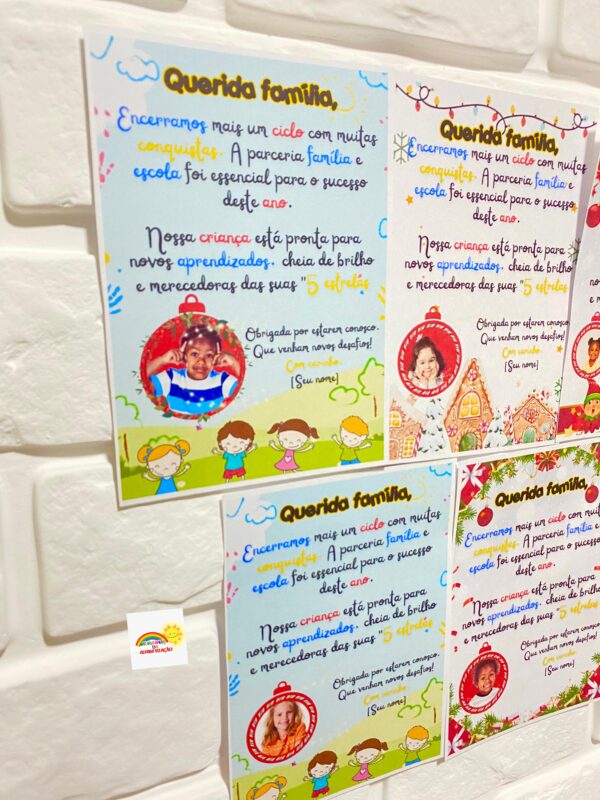 Querida família,
Encerramos mais um ciclo com muitas
conquistas. A parceria família e
escola foi essencial para o sucesso
deste ano.
Nossa criança está pronta para
novos aprendizados, cheia de brilho
e merecedoras das suas "5 estrelas
Obrigada por estarem conosco.
Que venham novos desafios!
Com carinho,
[Seu nome]
Querida família,
Encerramos mais um ciclo com muitas
conquistas. A parceria família e
escola foi essencial para o sucesso
deste ano.
Nossa criança está pronta para
novos aprendizados, cheia de brilho
e merecedoras das suas "5 estrelas
Obrigada por estarem conosco.
Que venham novos desafios!
Com carinho,
[Seu nome]
Querida família,
Encerramos mais um ciclo com muitas
conquistas. A parceria família e
escola foi essencial para o sucesso
deste ano.
Nossa criança está pronta para
novos aprendizados, cheia de brilho
e merecedoras das suas "5 estrelas
Obrigada por estarem conosco.
Que venham novos desafios!
Com carinho,
[Seu nome]
Querida família,
Encerramos mais um ciclo com
conquistas. A parceria família e
escola foi essencial para o sucesso
deste ano.
Nossa criança está pronta para
novos aprendizados, cheia de brilho
e merecedoras das suas "5 estrelas
Obrigada por estarem conosco.
Que venham novos desafios!
Com carinho,
[Seu nome]
ALFABETIZAÇÃO